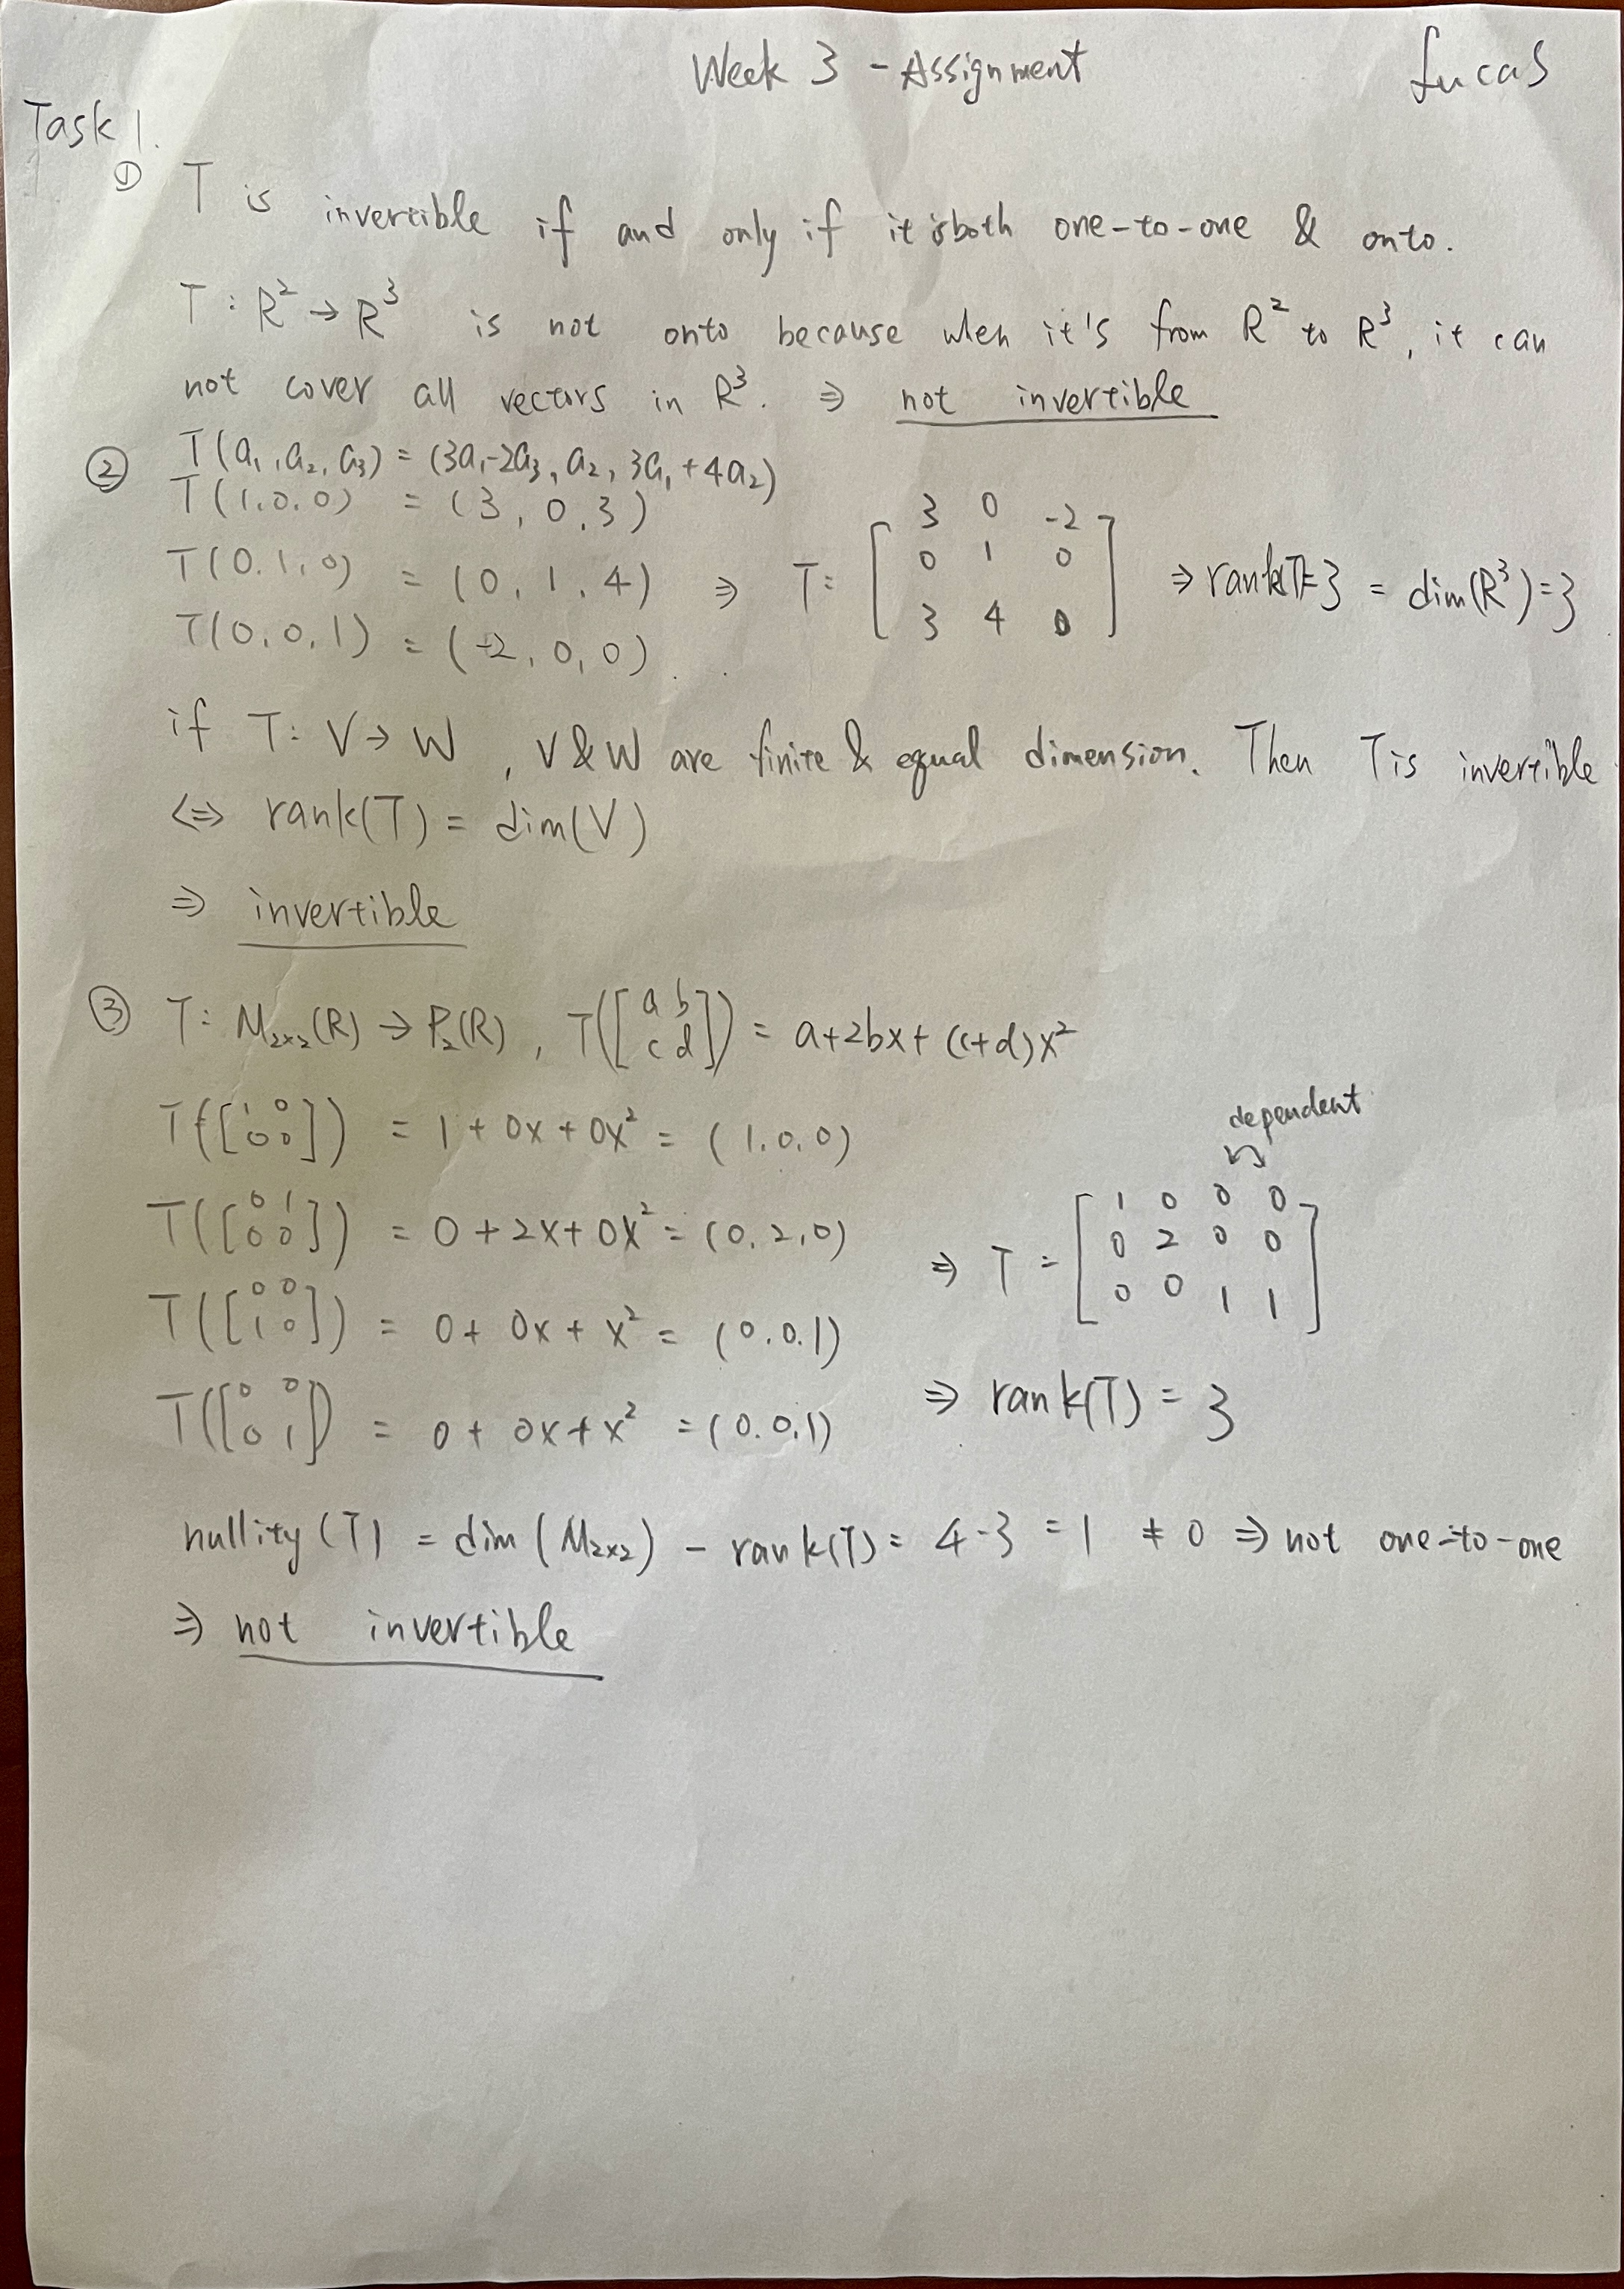 Week 3 - Assignment Lucas
Task 1.
① T is invertible if and only if it is both one-to-one & onto.
T : R² → R³ is not onto because when it's from R² to R³, it can
not cover all vectors in R³. ⇒ not invertible
② T(a₁, a₂, a₃) = (3a₁-2a₃, a₂, 3a₁+4a₂)
T(1,0,0) = (3, 0, 3)
T(0,1,0) = (0, 1, 4) ⇒ T = [3 0 -2; 0 1 0; 3 4 0] ⇒ rank(T)=3 = dim(R³)=3
T(0,0,1) = (-2, 0, 0)
if T: V → W , V & W are finite & equal dimension. Then T is invertible
<=> rank(T) = dim(V)
⇒ invertible
③ T: M₂ₓ₂(R) → P₂(R), T([a b; c d]) = a+2bx+(c+d)x²
T([1 0; 0 0]) = 1 + 0x + 0x² = (1,0,0)
T([0 1; 0 0]) = 0 + 2x + 0x² = (0,2,0)
T([0 0; 1 0]) = 0 + 0x + x² = (0,0,1)
T([0 0; 0 1]) = 0 + 0x + x² = (0,0,1)
dependent
⇒ T = [1 0 0 0; 0 2 0 0; 0 0 1 1]
⇒ rank(T) = 3
nullity(T) = dim(M₂ₓ₂) - rank(T) = 4-3 = 1 ≠ 0 ⇒ not one-to-one
⇒ not invertible